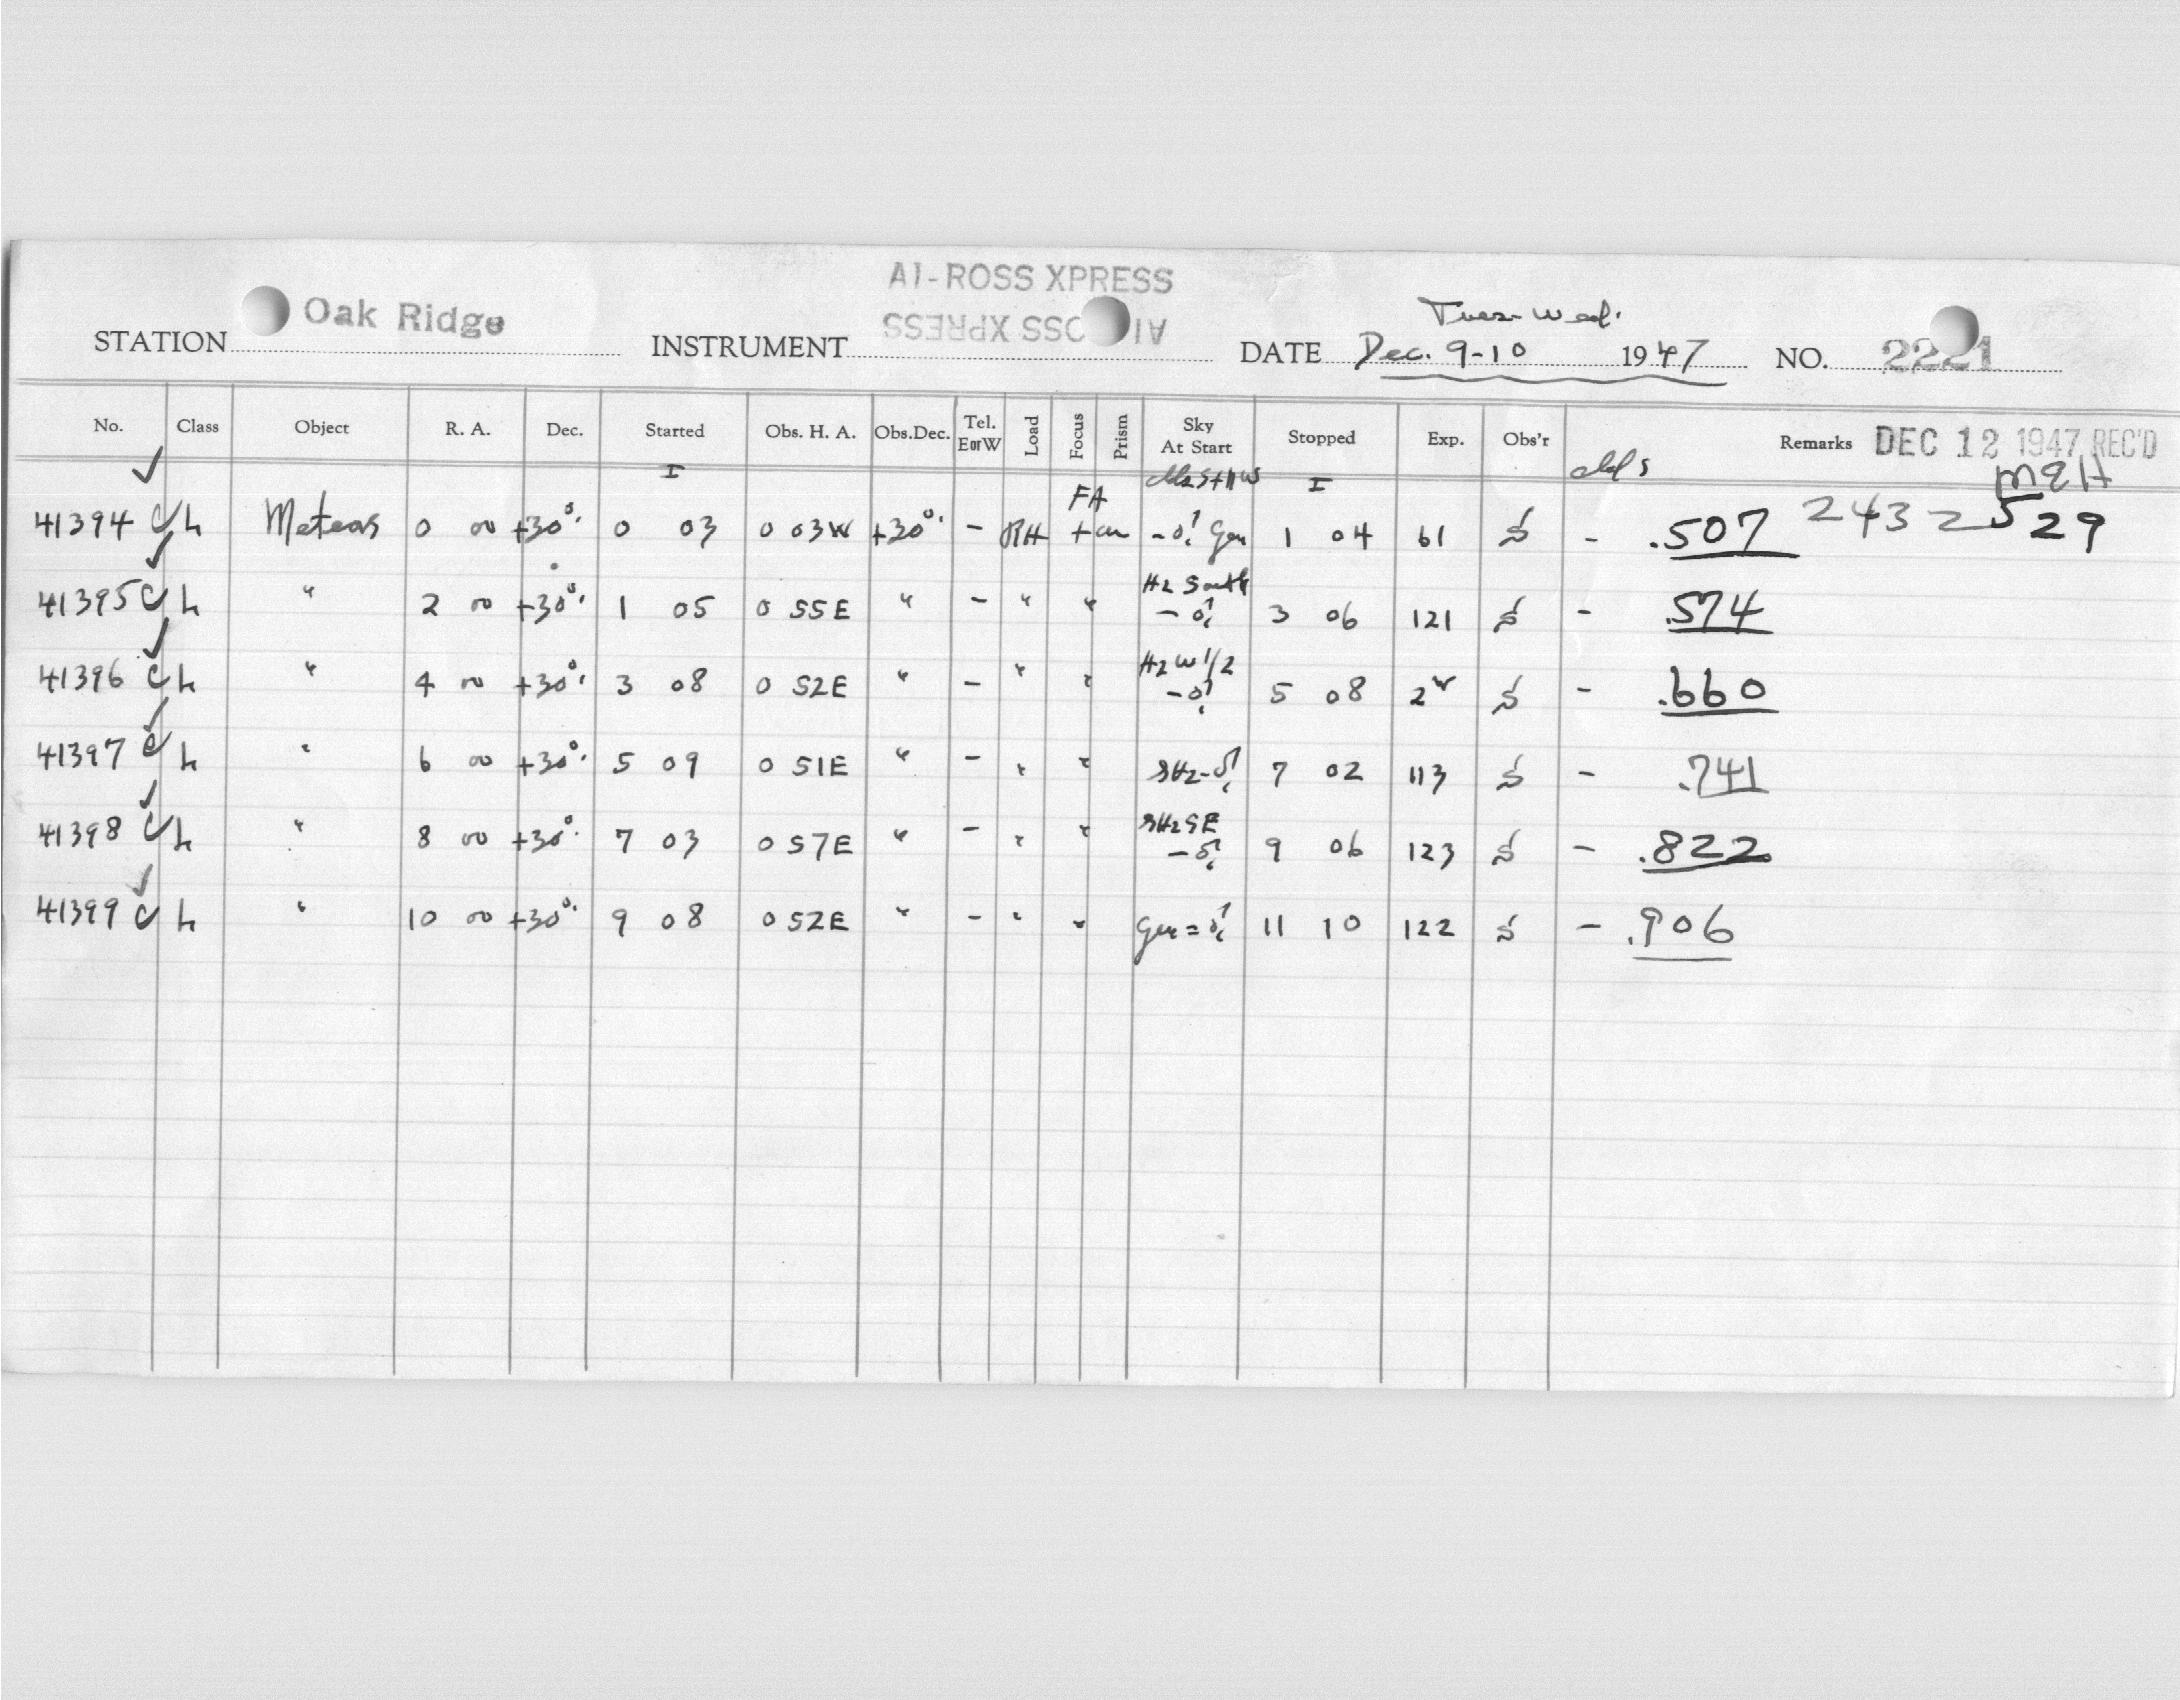 AI-ROSS XPRESS
Tues-Wed.
STATION Oak Ridge INSTRUMENT AI-ROSS XPRESS DATE Dec. 9-10 1947 NO. 2221
No. Class Object R. A. Dec. Started Obs. H. A. Obs.Dec. Tel. E or W Load Focus Prism Sky At Start Stopped Exp. Obs'r Remarks DEC 12 1947 REC'D
I I MQH
FA
41394 C L Meteors 0 00 +30° 0 03 0 03W +30° - RH + - 1 04 61 - .507 2432529
H2 South
41395 C L " 2 00 +30° 1 05 0 55E " - " " - 3 06 121 - .574
H2 W 1/2
41396 C L " 4 00 +30° 3 08 0 52E " - " " - 5 08 - .660
41397 C L " 6 00 +30° 5 09 0 51E " - " " 7 02 113 - .741
41398 C L " 8 00 +30° 7 03 0 57E " - " " - 9 06 123 - .822
41399 C L " 10 00 +30° 9 08 0 52E " - " " 11 10 122 - .906